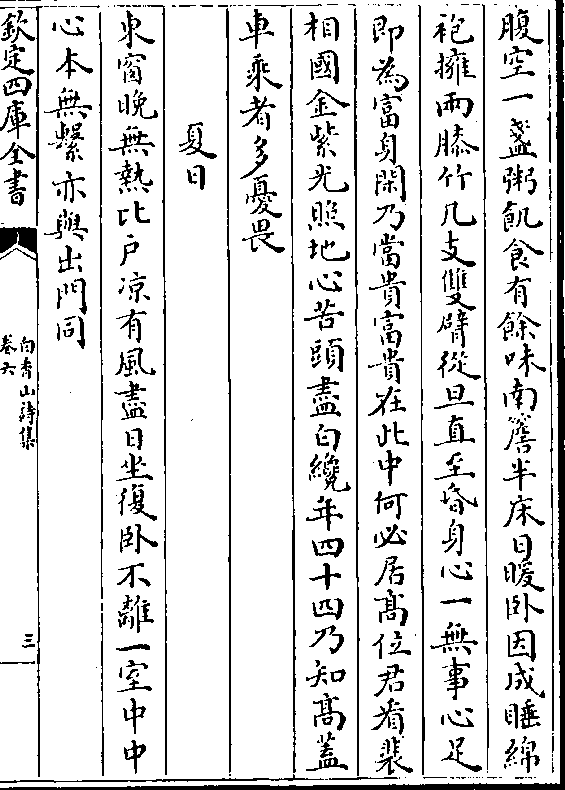 腹空一盞粥飢食有餘味南簷半床日暖卧因成睡綿
袍擁兩膝竹几支雙臂從旦直至昏身心一無事心足
即為富身閑乃當貴富貴在此中何必居髙位君看裴
相國金紫光照地心苦頭盡白纔年四十四乃知髙蓋
車乘者多憂畏
夏日
東窗晚無熱北户凉有風盡日坐復卧不離一室中中
心本無繫亦與出門同
欽定四庫全書
白香山詩集
卷六
三